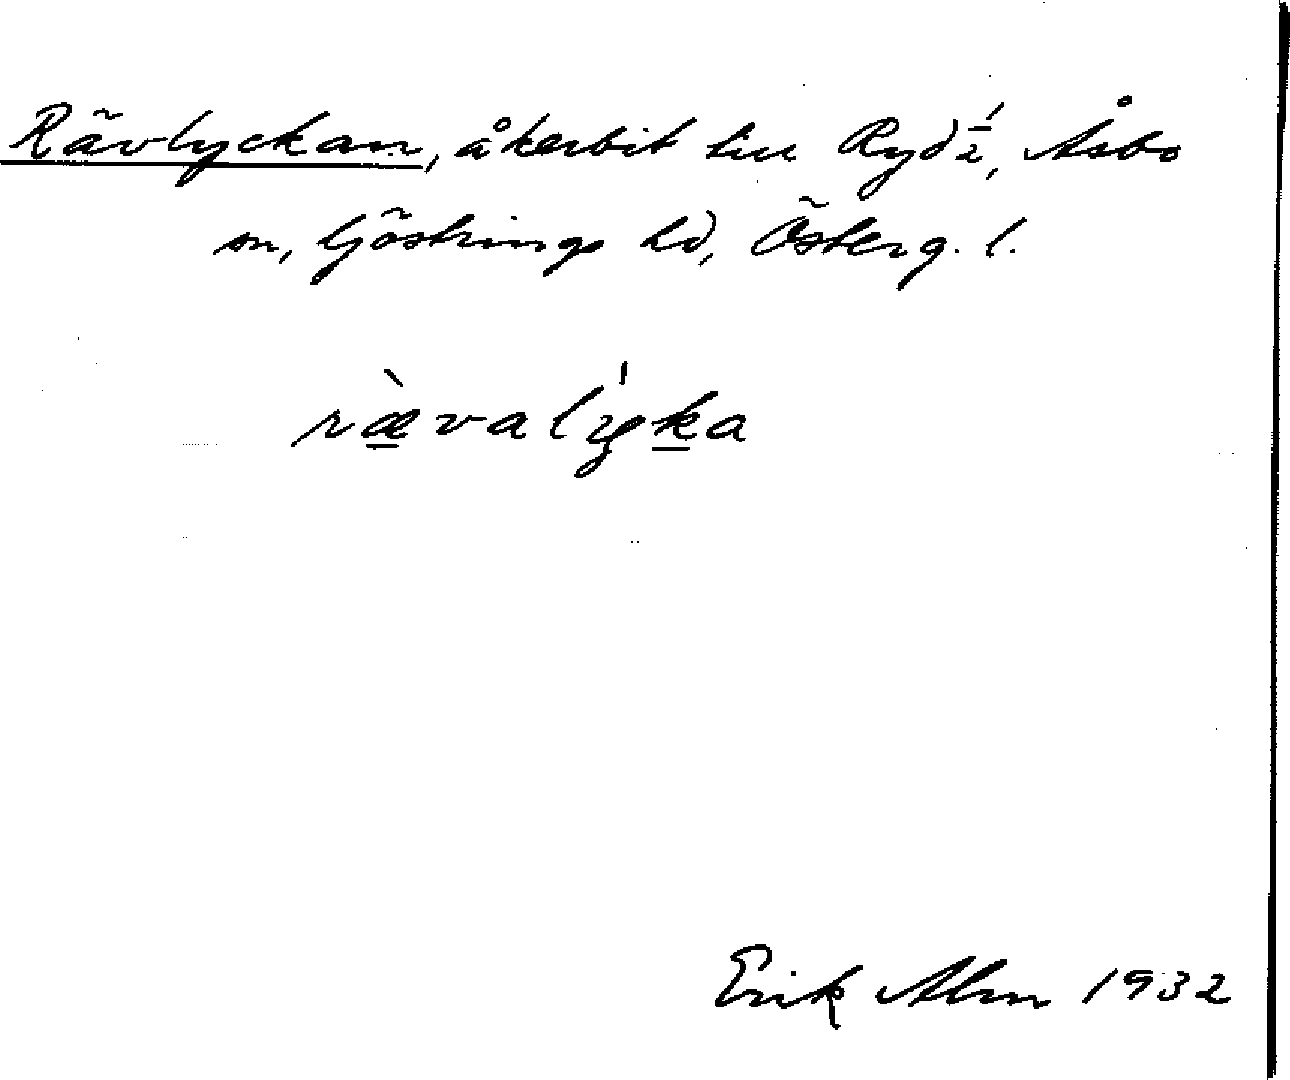 Rävlyckan, åkerbit till Ryd 1/2, Åsbo
sn, Göstrings hd, Österg. l.
ræ̀valy̍ka
Erik Alm 1932